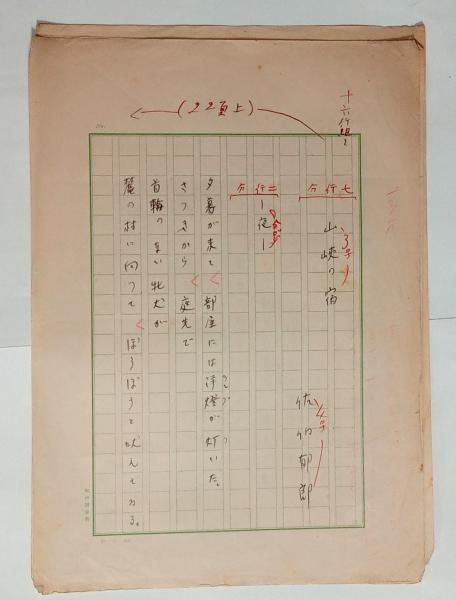 十六行組ミ
(22頁上)
七行分
山峡の宿
3号
佐伯郁郎
4号
二行分
―夜―
夕暮が来て 部屋には洋燈が灯いた。
らんぷ
つ
さつきから 庭先で
首輪のない牝犬が
麓の村に向つて ぼうぼうと吠えてゐる。